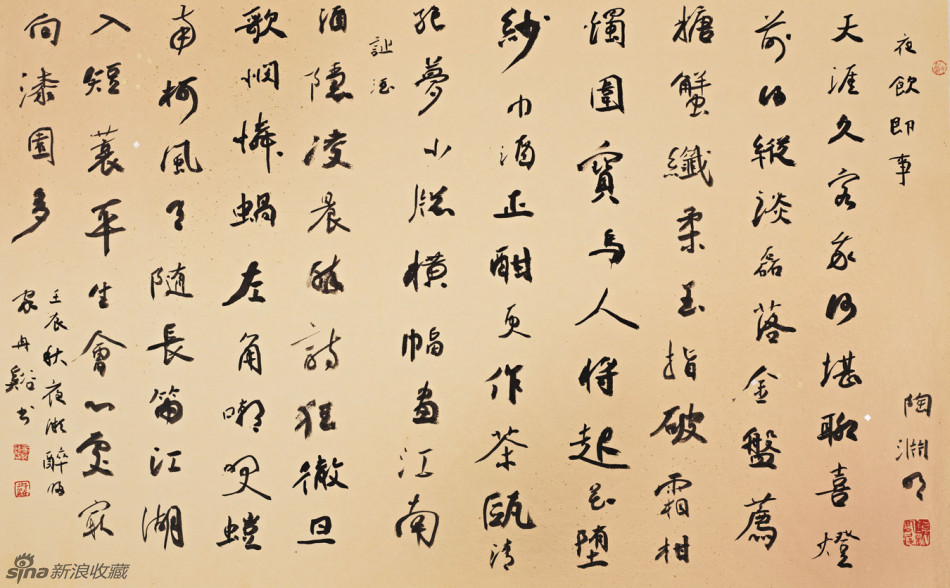 夜飲即事
陶淵明
天涯久客我何堪聊喜燈
前得縱談磊落金盤薦
糖蟹纖柔玉指破霜柑
燭圍寶馬人將起花墮
紗巾酒正酣更作茶甌清
絕夢小窗橫幅畫江南
酒隱凌晨醉詩狂徹旦
歌憫憐蝸左角嘲笑螘
南柯風月隨長笛江湖
入短蓑平生會心處最
向漆園多
壬辰秋夜微醉歸
家冉谿書
sina 新浪收藏